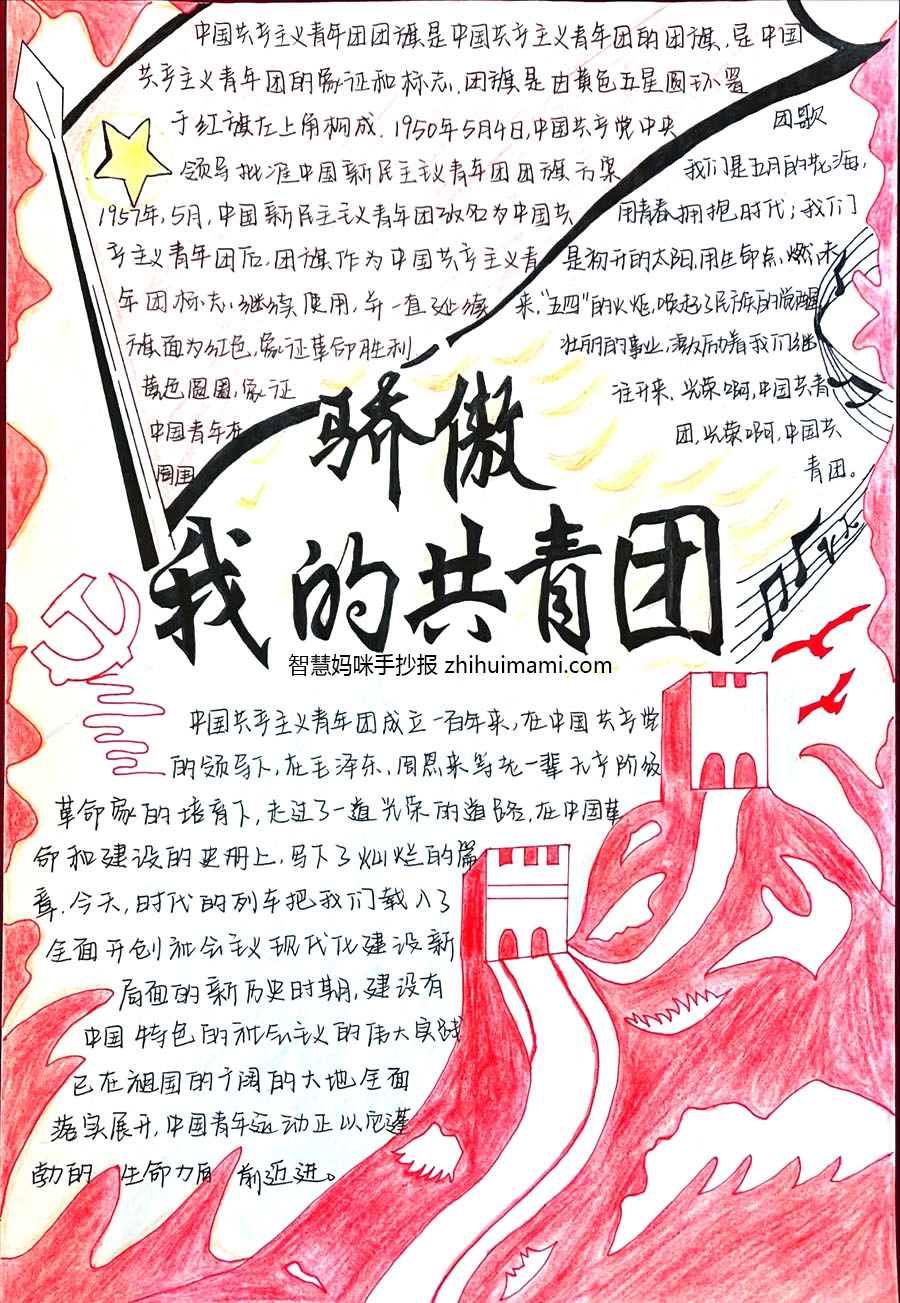 中国共产主义青年团团旗是中国共产主义青年团的团旗,是中国
共产主义青年团的象征和标志.团旗是由黄色五星圆环置
于红旗左上角构成.1950年5月4日,中国共产党中央
领导批准中国新民主主义青年团团旗方案
1957年,5月,中国新民主主义青年团改名为中国共
产主义青年团后.团旗作为中国共产主义青
年团标志,继续使用,并一直延续
旗面为红色,象征革命胜利.
黄色圆圈,象征
中国青年在
周围
团歌
我们是五月的花海,
用青春拥抱时代;我们
是初升的太阳,用生命点燃未
来."五四"的火炬,唤起了民族的觉醒
壮丽的事业,激励着我们继
往开来.光荣啊,中国共青
团,光荣啊,中国共
青团。
骄傲
我的共青团
智慧妈咪手抄报 zhihuimami.com
中国共产主义青年团成立一百年来,在中国共产党
的领导下,在毛泽东、周恩来等老一辈无产阶级
革命家的培育下,走过了一道光荣的道路,在中国革
命和建设的史册上,写下了灿烂的篇
章.今天,时代的列车把我们载入了
全面开创社会主义现代化建设新
局面的新历史时期,建设有
中国特色的社会主义的伟大实践
已在祖国的广阔的大地全面
落实展开,中国青年运动正以它蓬
勃的 生命力向 前迈进。